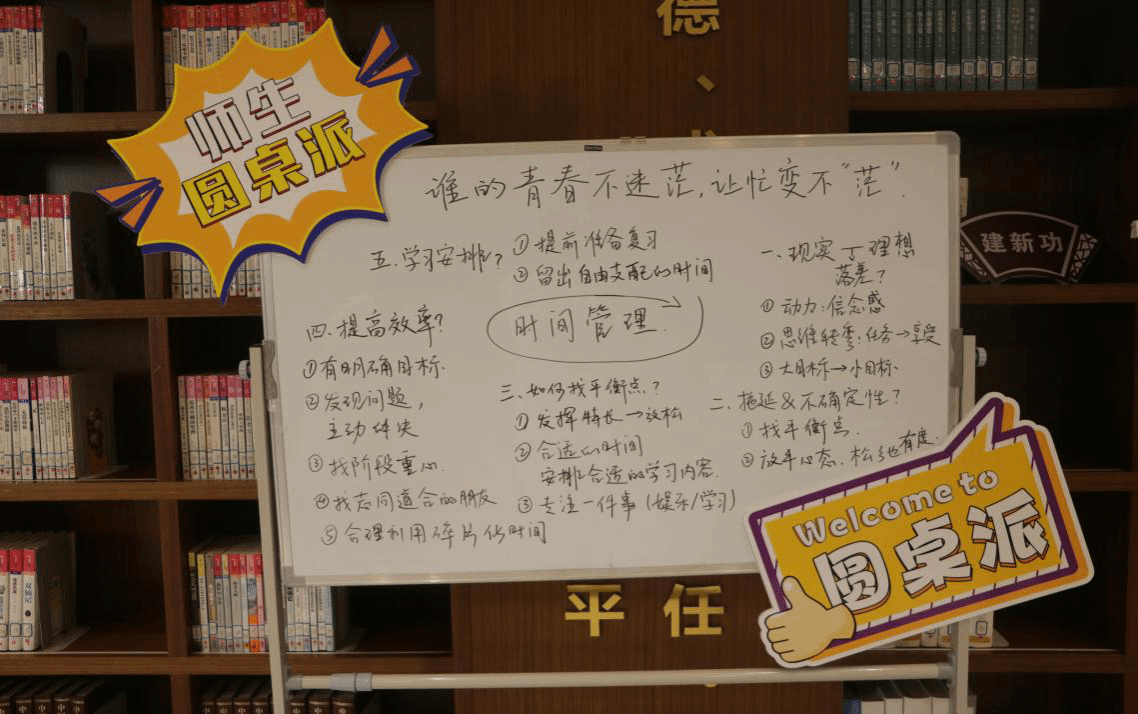 德、
师生
圆桌派
谁的青春不迷茫，让忙变不“茫”.
建新功
一、现实丁理想
落差？
① 动力：信念感
② 思维转弯：任务→享受
③ 大目标→小目标
二、拖延&不确定性？
① 找平衡点.
② 放平心态，松弛有度.
三、如何找平衡点？
① 发挥特长→放松
② 合适的时间
安排合适的学习内容.
③ 专注一件事（娱乐/学习）
四.提高效率？
①有明确目标.
②发现问题，
主动解决
③找阶段重心.
④找志同道合的朋友
⑤合理利用碎片化时间
五.学习安排？
①提前准备复习
②留出自由支配的时间
时间管理.
Welcome to
圆桌派
平 任
双城记